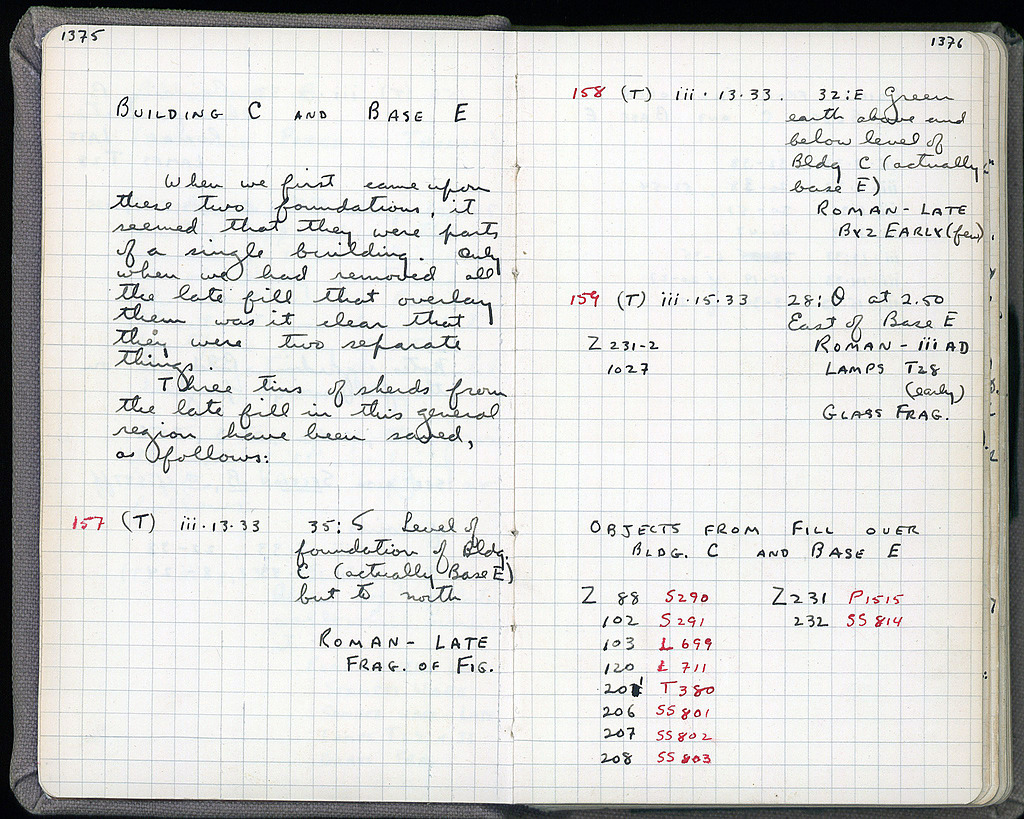 1375
BUILDING C AND BASE E
When we first came upon
these two foundations, it
seemed that they were parts
of a single building. Only
when we had removed all
the late fill that overlay
them was it clear that
they were two separate
things.
Three tins of sherds from
the late fill in this general
region have been saved,
as follows:
157 (T) iii·13·33 35:5 Level of
foundation of Bldg.
C (actually Base E)
but to north
ROMAN-LATE
FRAG. OF FIG.
1376
158 (T) iii·13·33. 32:E Green
earth above and
below level of
Bldg C (actually
base E)
ROMAN-LATE
BYZ EARLY (few)
159 (T) iii·15·33 28:Θ at 2.50
East of Base E
Z 231-2 ROMAN-iii AD
1027 LAMPS T28
(early)
GLASS FRAG.
OBJECTS FROM FILL OVER
BLDG. C AND BASE E
Z 88 S290 Z231 P1515
102 S291 232 SS814
103 L 699
120 L 711
201 T380
206 SS801
207 SS802
208 SS803